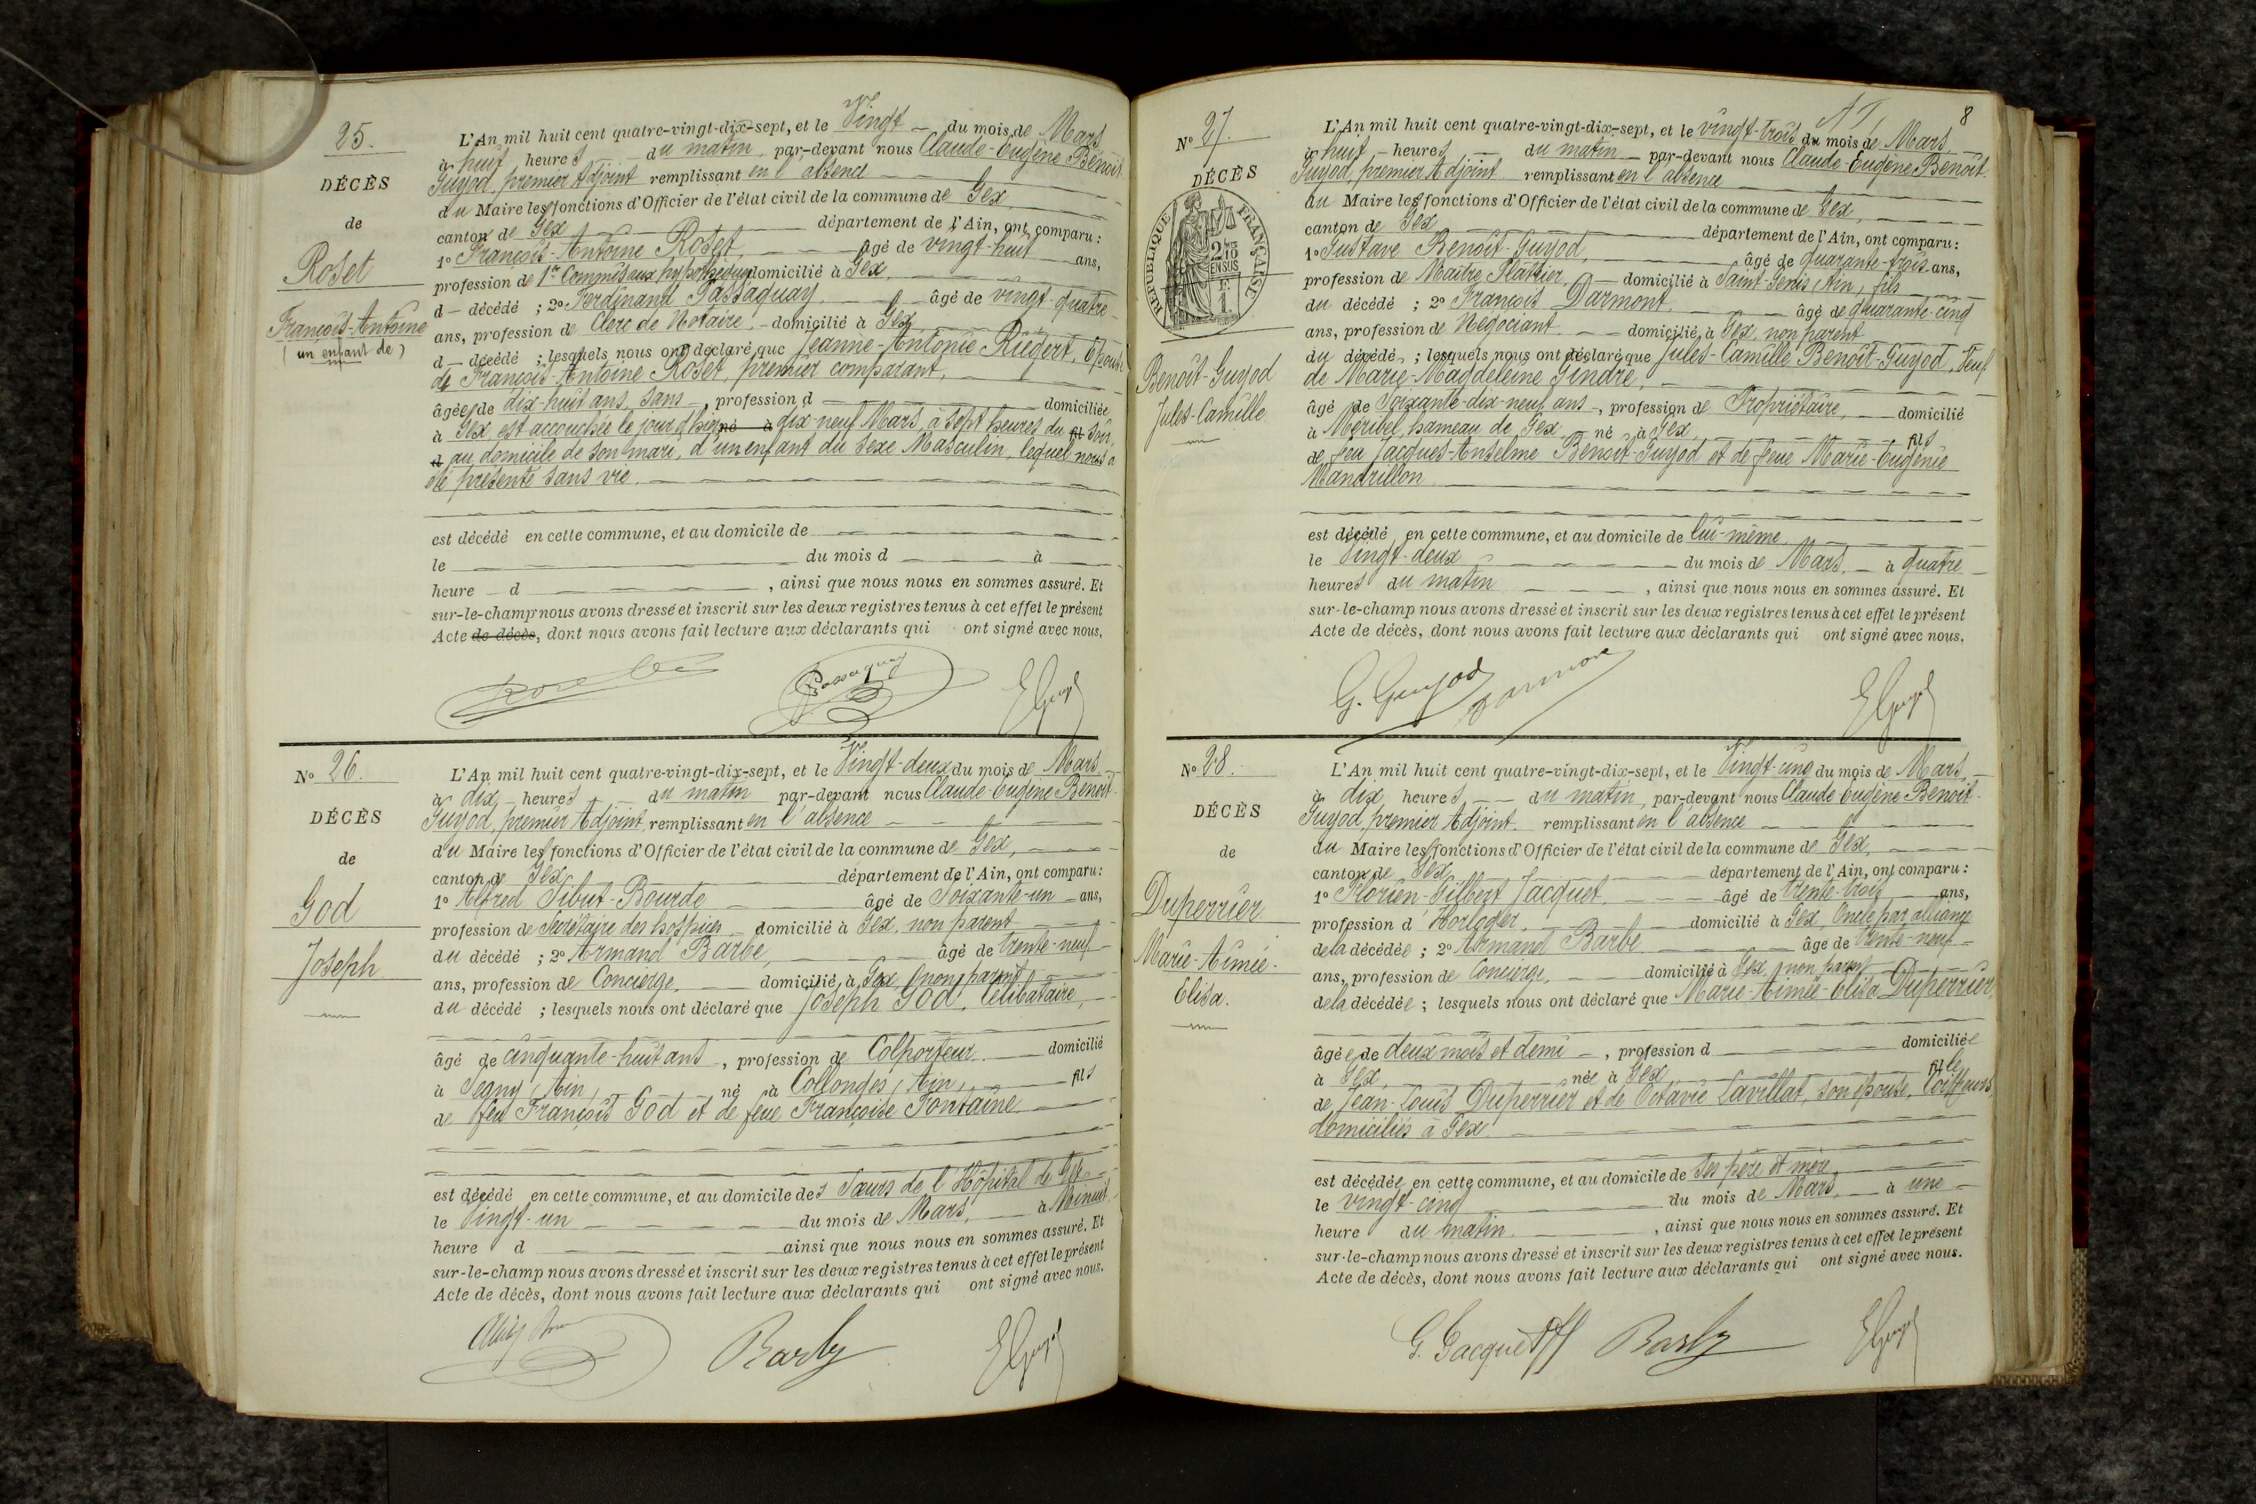 25.
DÉCÈS
de
Roset
François-Antoine
(un enfant de)
L'An mil huit cent quatre-vingt-dix-sept, et le Vingt du mois de Mars
à huit heures du matin par-devant nous Claude-Eugène Benoit-
Guyod, premier Adjoint remplissant en l'absence
du Maire les fonctions d'Officier de l'état civil de la commune de Gex,
canton de Gex département de l'Ain, ont comparu :
1º François-Antoine Roset, âgé de vingt-huit ans,
profession de 1er Commis aux hypothèques domicilié à Gex,
d décédé ; 2º Ferdinand Passaquay, âgé de vingt-quatre
ans, profession de Clerc de Notaire, domicilié à Gex,
d décédé ; lesquels nous ont déclaré que Jeanne-Antonie Riégert, Epouse
de François-Antoine Roset, premier comparant,
âgée de dix-huit ans, sans, profession d domiciliée
à Gex est accouchée le jour d'hier né à dix-neuf Mars, à sept heures du fil soir,
d au domicile de son mari, d'un enfant du sexe Masculin, lequel nous a
été présenté sans vie.
est décédé en cette commune, et au domicile de
le du mois d à
heure d , ainsi que nous nous en sommes assuré. Et
sur-le-champ nous avons dressé et inscrit sur les deux registres tenus à cet effet le présent
Acte de décès, dont nous avons fait lecture aux déclarants qui ont signé avec nous.
Passaquay EGuyod
Nº 26.
DÉCÈS
de
God
Joseph
L'An mil huit cent quatre-vingt-dix-sept, et le Vingt-deux du mois de Mars
à dix heures du matin par-devant nous Claude-Eugène Benoit-
Guyod, premier Adjoint, remplissant en l'absence
du Maire les fonctions d'Officier de l'état civil de la commune de Gex,
canton de Gex, département de l'Ain, ont comparu :
1º Alfred Tibut-Bourde âgé de Soixante-un ans,
profession de Secrétaire des hospices domicilié à Gex, non parent
du décédé ; 2º Armand Barbe, âgé de trente-neuf
ans, profession de Concierge, domicilié à Gex (non parent)
du décédé ; lesquels nous ont déclaré que Joseph God, Célibataire,
âgé de cinquante-huit ans, profession de Colporteur domicilié
à Segny (Ain) né à Collonges (Ain), fils
de feu François God et de feue Françoise Fontaine
est décédé en cette commune, et au domicile des Sœurs de l'Hôpital de Gex
le Vingt-un du mois de Mars, à Minuit,
heure d ainsi que nous nous en sommes assuré. Et
sur-le-champ nous avons dressé et inscrit sur les deux registres tenus à cet effet le présent
Acte de décès, dont nous avons fait lecture aux déclarants qui ont signé avec nous.
Barbe EGuyod
8
Nº 27.
DÉCÈS
RÉPUBLIQUE FRANÇAISE
2/10 EN SUS
Benoit-Guyod
Jules-Camille
L'An mil huit cent quatre-vingt-dix-sept, et le vingt-trois du mois de Mars
à huit heures du matin par-devant nous Claude-Eugène Benoit-
Guyod, premier Adjoint remplissant en l'absence
du Maire les fonctions d'Officier de l'état civil de la commune de Gex,
canton de Gex département de l'Ain, ont comparu :
1º Gustave Benoit-Guyod, âgé de quarante-trois ans,
profession de Maître Plâtrier, domicilié à Saint-Genis (Ain), fils
du décédé ; 2º François Darmont, âgé de quarante-cinq
ans, profession de Négociant domicilié à Gex, non parent
du décédé ; lesquels nous ont déclaré que Jules-Camille Benoit-Guyod, Veuf
de Marie-Magdeleine Gindre,
âgé de Soixante-dix-neuf ans, profession de Propriétaire, domicilié
à Méribel, hameau de Gex né à Gex, fils
de feu Jacques-Anselme Benoit-Guyod et de feue Marie-Eugénie
Mandrillon
est décédé en cette commune, et au domicile de lui-même
le Vingt-deux du mois de Mars, à quatre
heures du matin , ainsi que nous nous en sommes assuré. Et
sur-le-champ nous avons dressé et inscrit sur les deux registres tenus à cet effet le présent
Acte de décès, dont nous avons fait lecture aux déclarants qui ont signé avec nous.
G. Guyod Darmont EGuyod
Nº 28.
DÉCÈS
de
Duperrier
Marie-Aimée-
Elisa.
L'An mil huit cent quatre-vingt-dix-sept, et le Vingt-cinq du mois de Mars,
à dix heures du matin, par-devant nous Claude Eugène Benoit-
Guyod, premier Adjoint remplissant en l'absence
du Maire les fonctions d'Officier de l'état civil de la commune de Gex,
canton de Gex département de l'Ain, ont comparu :
1º Florien-Gilbert Jacquet, âgé de trente-trois ans,
profession d'Horloger, domicilié à Gex, Oncle par alliance
de la décédée ; 2º Armand Barbe âgé de trente-neuf
ans, profession de Concierge, domicilié à Gex, non parent
de la décédée ; lesquels nous ont déclaré que Marie-Aimée-Elisa Duperrier,
âgée de deux mois et demi, profession d domiciliée
à Gex, née à Gex fille
de Jean-Louis Duperrier et de Octavie Lavillat, son épouse, Coiffeurs,
domiciliés à Gex.
est décédée en cette commune, et au domicile de ses père et mère,
le vingt-cinq du mois de Mars, à une
heure du matin , ainsi que nous nous en sommes assuré. Et
sur-le-champ nous avons dressé et inscrit sur les deux registres tenus à cet effet le présent
Acte de décès, dont nous avons fait lecture aux déclarants qui ont signé avec nous.
G. Jacquet Barbe EGuyod